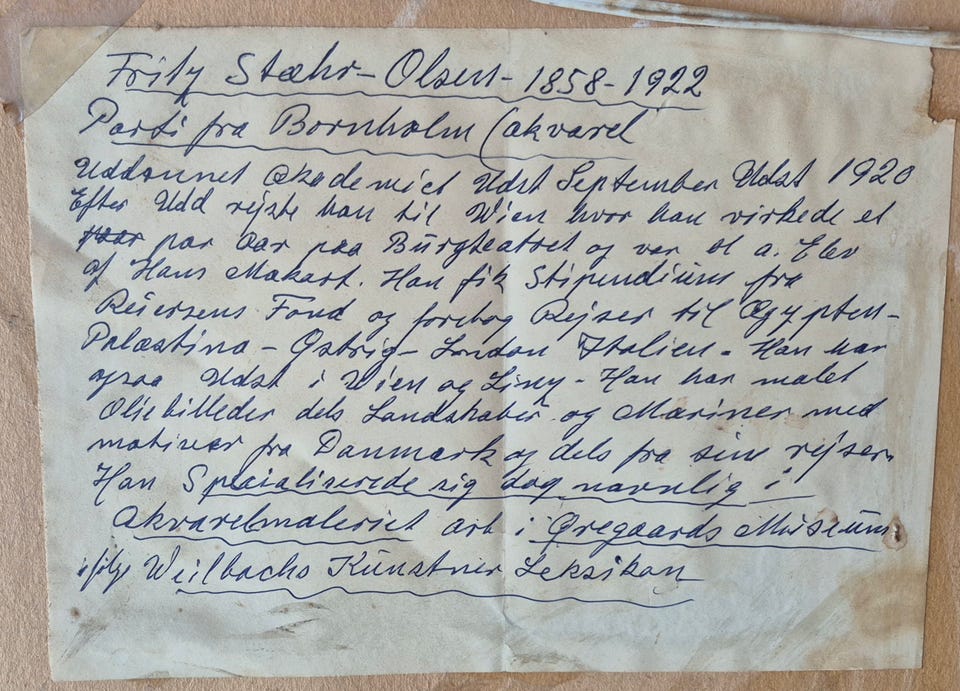 Fritz Stæhr-Olsen - 1858-1922
Parti fra Bornholm (akvarel
Uddannet Akademiet Udst September Udst 1920
Efter Udd rejste han til Wien hvor han virkede et
par Aar paa Burgteatret og var bl a. Elev
af Hans Makart. Han fik Stipendium fra
Reiersens Fond og foretog Rejser til Ægypten-
Palæstina - Østrig - London Italien - Han har
ogsaa Udst i Wien og Linz - Han har malet
Oliebilleder dels Landskaber og Mariner med
motiver fra Danmark og dels fra sine rejser.
Han Specialiserede sig dog navnlig i
Akvarelmaleriet arb i Øregaards Museum
ifølge Weilbachs Kunstner Leksikon